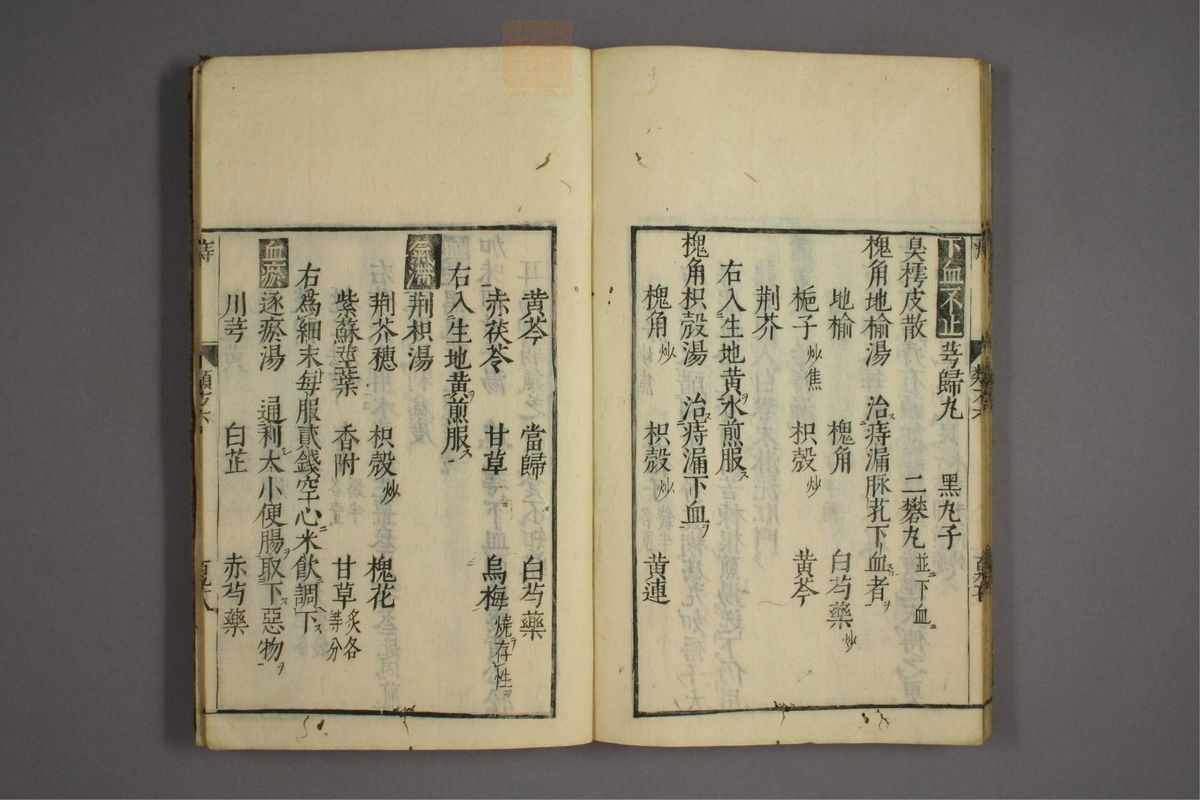 下血不止 芎歸丸 黑丸子
臭樗皮散 二礬丸並下血ニ
槐角地榆湯 治ス痔漏脉芤下血者ヲ
地榆 槐角 白芍藥炒
梔子炒焦 枳殼炒 黄芩
荆芥
右入生地黄ヲ水煎服ス
槐角枳殼湯 治ス痔漏下血ヲ
槐角炒 枳殼炒 黄連
黄芩 當歸 白芍藥
赤茯苓 甘草 烏梅燒テ存性ヲ
右入生地黄ヲ煎服ス
氣滯 荆枳湯
荆芥穗 枳殼炒 槐花
紫蘇莖葉 香附 甘草炙各等分
右爲細末每服貳錢空心ニ米飲調下ス
血瘀 逐瘀湯 通利大小便腸ヲ取下ス惡物ヲ
川芎 白芷 赤芍藥
痔